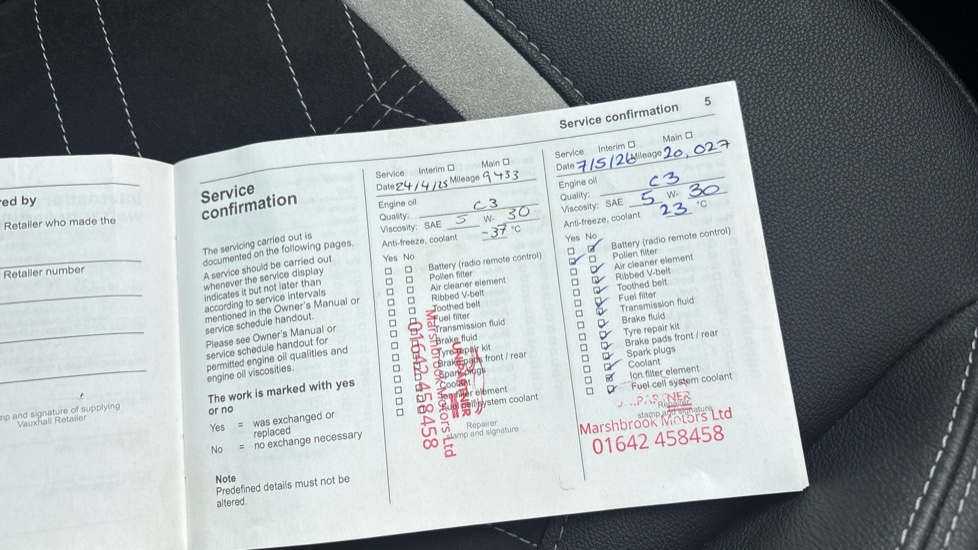 ed by
Retailer who made the
Retailer number
mp and signature of supplying
Vauxhall Retailer
Service confirmation 5
Service
confirmation
The servicing carried out is
documented on the following pages.
A service should be carried out
whenever the service display
indicates it but not later than
according to service intervals
mentioned in the Owner's Manual or
service schedule handout.
Please see Owner's Manual or
service schedule handout for
permitted engine oil qualities and
engine oil viscosities.
The work is marked with yes
or no
Yes = was exchanged or
replaced
No = no exchange necessary
Note
Predefined details must not be
altered.
Service Interim Main
Date 24/4/25 Mileage 9433
Engine oil
Quality: C3
Viscosity: SAE 5 W- 30
Anti-freeze, coolant -37 °C
Yes No
Battery (radio remote control)
Pollen filter
Air cleaner element
Ribbed V-belt
Toothed belt
Fuel filter
Transmission fluid
Brake fluid
Tyre repair kit
Brake pads front / rear
Spark plugs
Coolant
element
Fuel cell system coolant
Repairer
stamp and signature
Marshbrook Motors Ltd
01642 458458
Service Interim Main
Date 7/5/26 Mileage 20,027
Engine oil
Quality: C3
Viscosity: SAE 5 W- 30
Anti-freeze, coolant 23 °C
Yes No
Battery (radio remote control)
Pollen filter
Air cleaner element
Ribbed V-belt
Toothed belt
Fuel filter
Transmission fluid
Brake fluid
Tyre repair kit
Brake pads front / rear
Spark plugs
Coolant
Ion filter element
Fuel cell system coolant
Repairer
stamp and signature
Marshbrook Motors Ltd
01642 458458